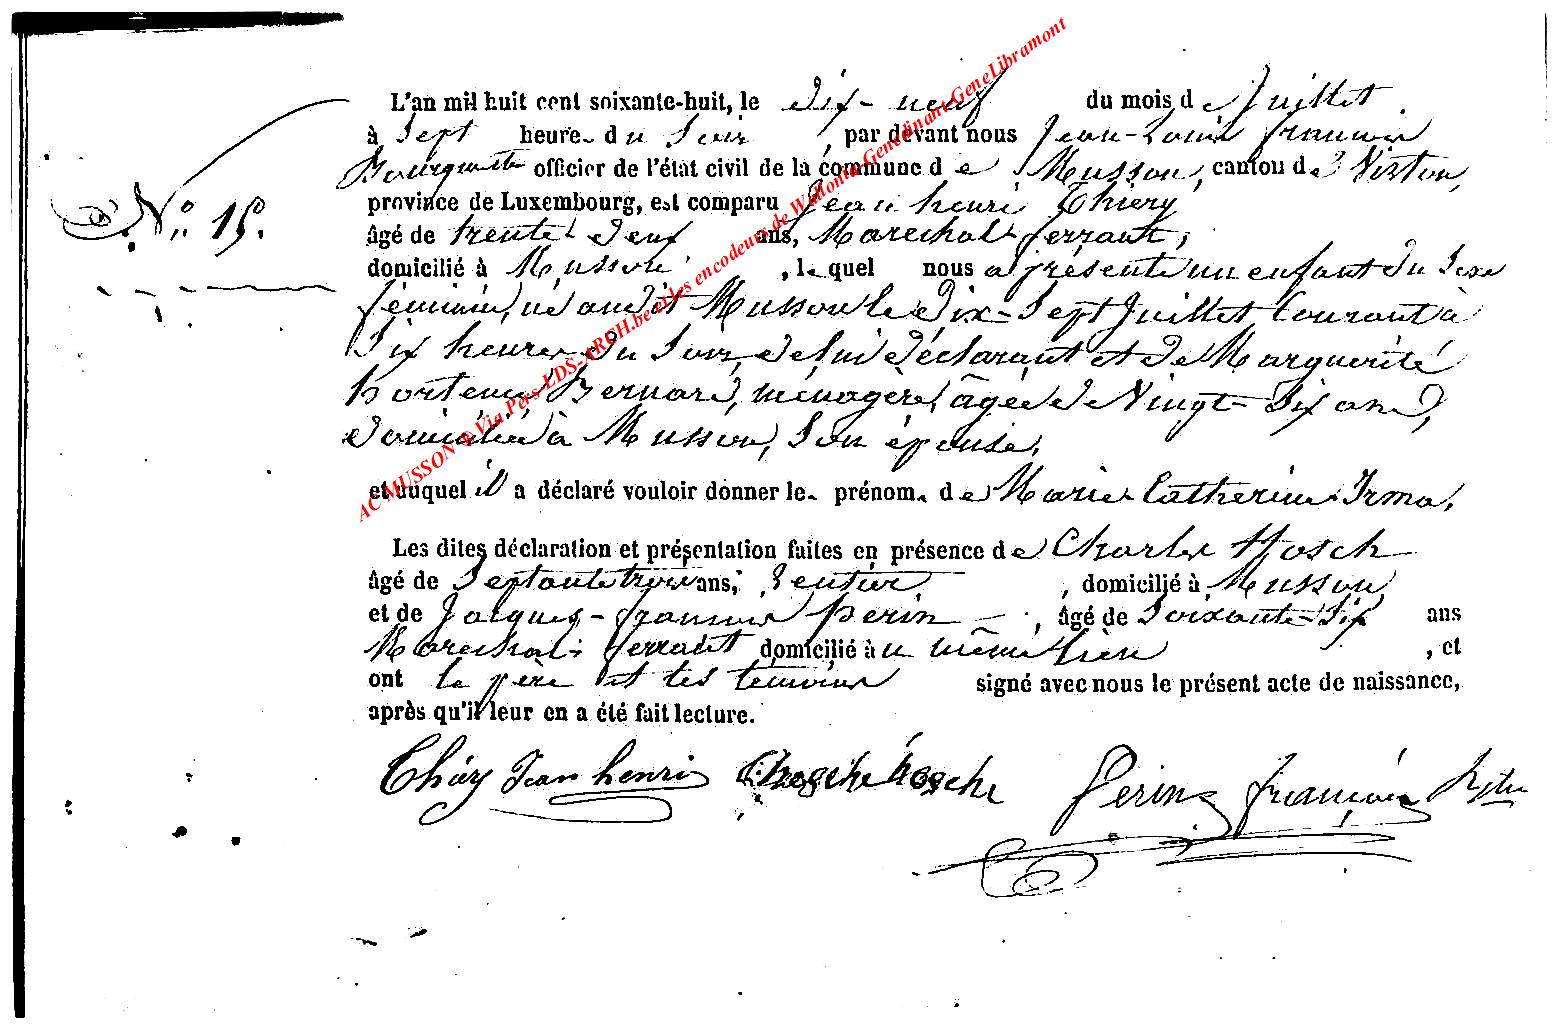 L'an mil huit cent soixante-huit, le dix-neuf du mois de Juillet
à Sept heure du Soir, par devant nous Jean-Louis François
Bourguitte officier de l'état civil de la commune de Musson, canton de Virton,
province de Luxembourg, est comparu Jean henri Thiery
N° 15.
âgé de trente-deux ans, Marechal-ferrant,
domicilié à Musson, lequel nous a présenté un enfant du Sexe
féminin, né audit Musson le Dix-Sept Juillet Courant à
Six heures du Soir, de lui déclarant et de Marguerite
hortence Bernard, ménagère, âgée de Vingt-Six ans,
domiciliée à Musson, Son épouse,
et auquel il a déclaré vouloir donner le prénom de Marie Catherine Irma.
Les dites déclaration et présentation faites en présence de Charles Hosch
âgé de Septante trois ans, rentier, domicilié à Musson
et de Jacques-françois perin, âgé de Soixante-Six ans
Marechal-ferrant domicilié au même lieu, et
ont le père et les témoins signé avec nous le présent acte de naissance,
après qu'il leur en a été fait lecture.
Thiry Jean henri Hosche Perin françois
AC MUSSON @ Via Pers-LDS-ARCH.be et les encodeurs de Wallonia-GenDinant-GeneLibramont